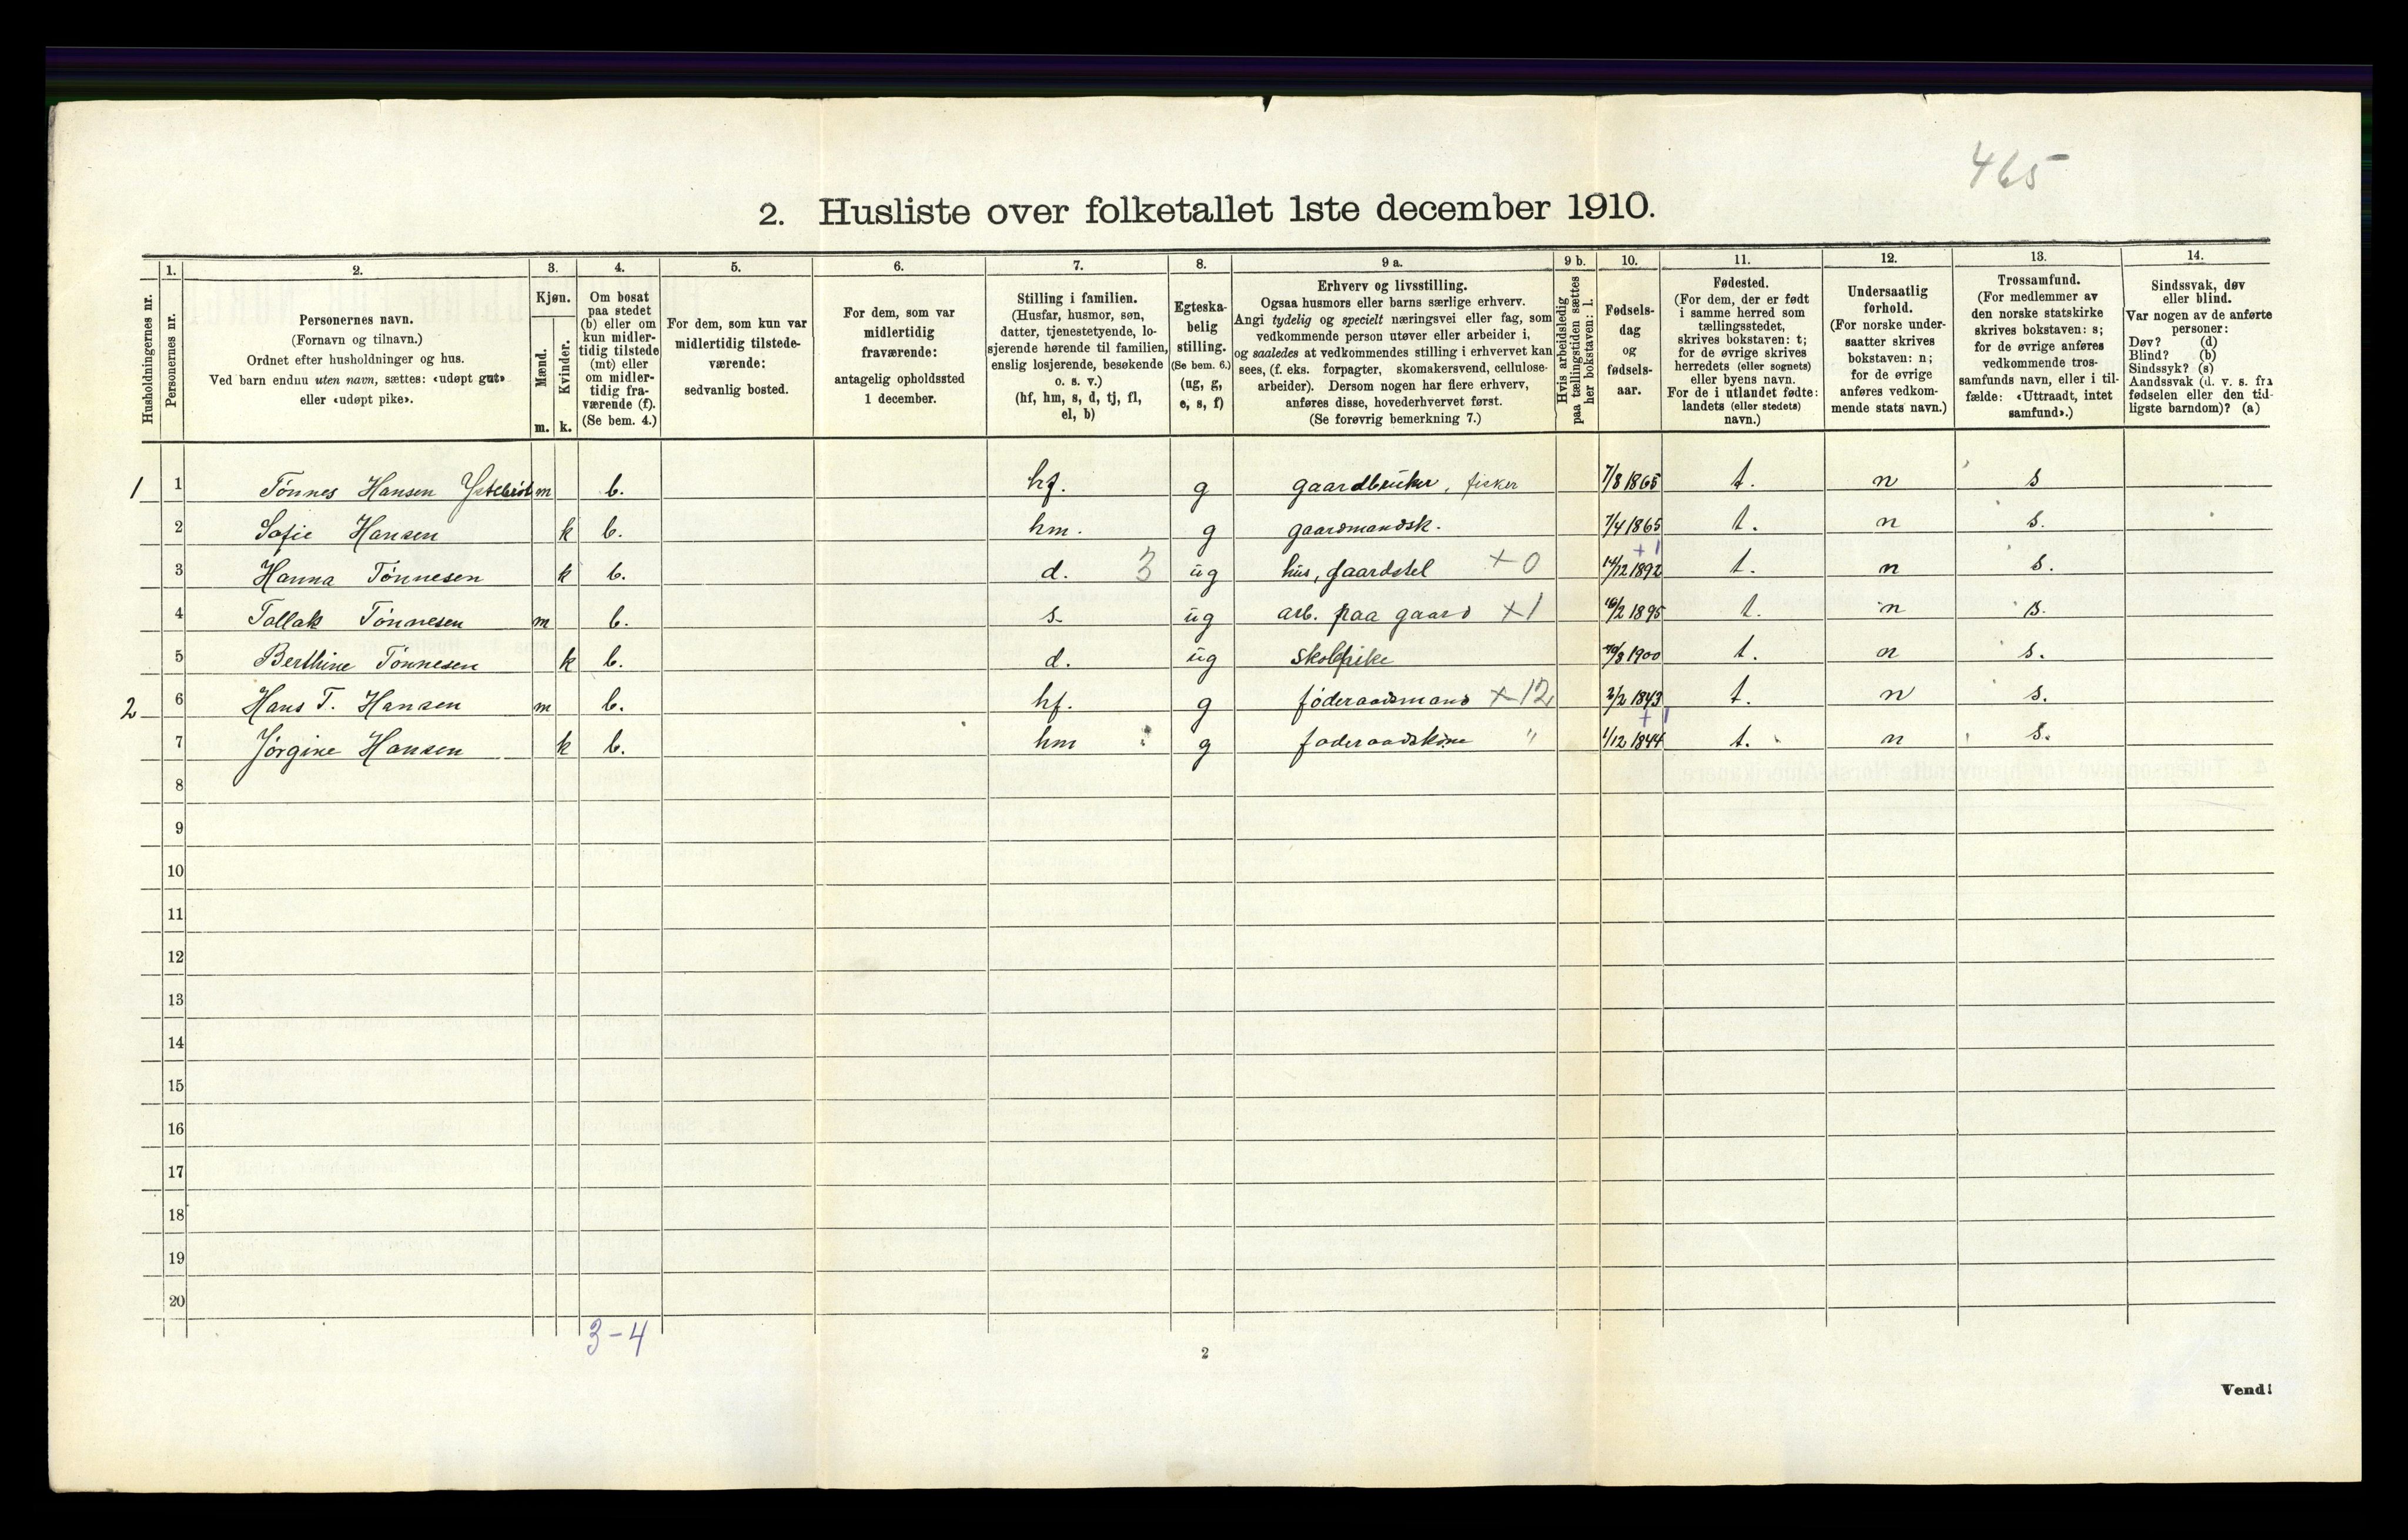 465
2. Husliste over folketallet 1ste december 1910.
Husholdningernes nr.
1.
Personernes nr.
2.
Personernes navn.
(Fornavn og tilnavn.)
Ordnet efter husholdninger og hus.
Ved barn endnu uten navn, sættes: «udøpt gut»
eller «udøpt pike».
3.
Kjøn.
Mænd.
m.
Kvinder.
k.
4.
Om bosat
paa stedet
(b) eller om
kun midler-
tidig tilstede
(mt) eller
om midler-
tidig fra-
værende (f).
(Se bem. 4.)
5.
For dem, som kun var
midlertidig tilstede-
værende:
sedvanlig bosted.
6.
For dem, som var
midlertidig
fraværende:
antagelig opholdssted
1 december.
7.
Stilling i familien.
(Husfar, husmor, søn,
datter, tjenestetyende, lo-
sjerende hørende til familien,
enslig losjerende, besøkende
o. s. v.)
(hf, hm, s, d, tj, fl,
el, b)
8.
Egteska-
belig
stilling.
(Se bem. 6.)
(ug, g,
e, s, f)
9 a.
Erhverv og livsstilling.
Ogsaa husmors eller barns særlige erhverv.
Angi tydelig og specielt næringsvei eller fag, som
vedkommende person utøver eller arbeider i,
og saaledes at vedkommendes stilling i erhvervet kan
sees, (f. eks. forpagter, skomakersvend, cellulose-
arbeider). Dersom nogen har flere erhverv,
anføres disse, hovederhvervet først.
(Se forøvrig bemerkning 7.)
9 b.
Hvis arbeidsledig
paa tællingstiden sættes
her bokstaven: l.
10.
Fødsels-
dag
og
fødsels-
aar.
11.
Fødested.
(For dem, der er født
i samme herred som
tællingsstedet,
skrives bokstaven: t;
for de øvrige skrives
herredets (eller sognets)
eller byens navn.
For de i utlandet fødte:
landets (eller stedets)
navn.)
12.
Undersaatlig
forhold.
(For norske under-
saatter skrives
bokstaven: n;
for de øvrige
anføres vedkom-
mende stats navn.)
13.
Trossamfund.
(For medlemmer av
den norske statskirke
skrives bokstaven: s;
for de øvrige anføres
vedkommende tros-
samfunds navn, eller i til-
fælde: «Uttraadt, intet
samfund».)
14.
Sindssvak, døv
eller blind.
Var nogen av de anførte
personer:
Døv? (d)
Blind? (b)
Sindssyk? (s)
Aandssvak (d. v. s. fra
fødselen eller den tid-
ligste barndom)? (a)
1 1 Tönnes Hansen m b. hf. g gaardbruker, fisker 7/8 1865 t. n s
2 Sofie Hansen k b. hm. g gaardmandsk. 7/4 1865 t. n s.
+1
3 Hanna Tönnesen k b. d. 3 ug hus, gaardstel +0 14/12 1892 t. n s.
4 Tollak Tönnesen m b. s. ug arb. paa gaard +1 16/2 1895 t. n s.
5 Berthine Tönnesen k b. d. ug skolepike 1900 t. n s.
2 6 Hans T. Hansen m b. hf. g føderaadsmand +12 3/2 1843 t. n s.
+1
7 Jørgine Hansen k b. hm g foderaadskone " 1/12 1844 t. n s.
8
9
10
11
12
13
14
15
16
17
18
19
20
3-4
2
Vend!